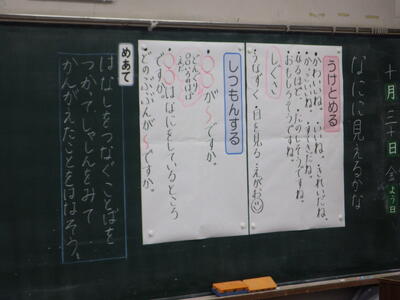 十月三十日 金よう日
なにに見えるかな
うけとめる
・かわいいね。・いいね。・きれいだね。
・かっこいいね。・すてきだね。
・なるほど。・たのしそうですね。
・おもしろそうですね。
しぐさ
・うなずく・目を見る・えがお
しつもんする
・〇〇が〜ですか。
・〇〇はなにをしているところ
ですか。
・どのぶぶんが〜ですか。
めあて
はなしをつなぐことばを
つかってしゃしんをみて
かんがえたことをはなそう。